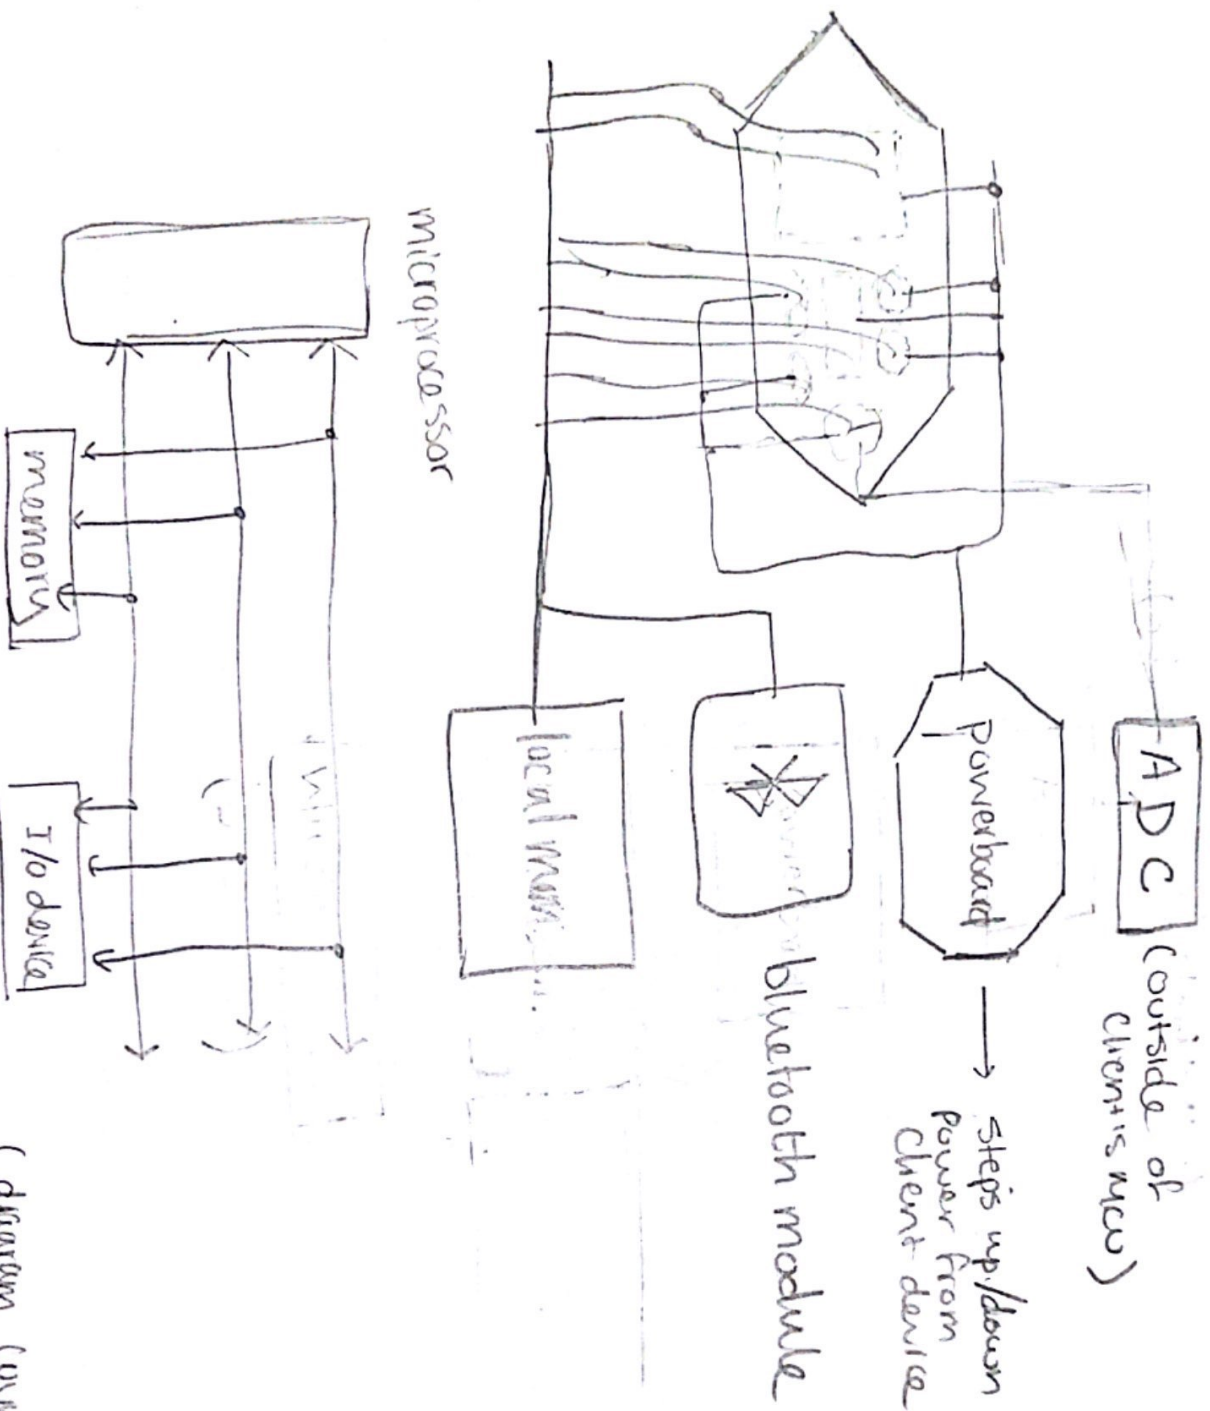 ADC
(outside of
client's mcu)
powerboard
steps up/down
power from
client device
bluetooth module
local mem...
microprocessor
memory
I/o device
(diagram